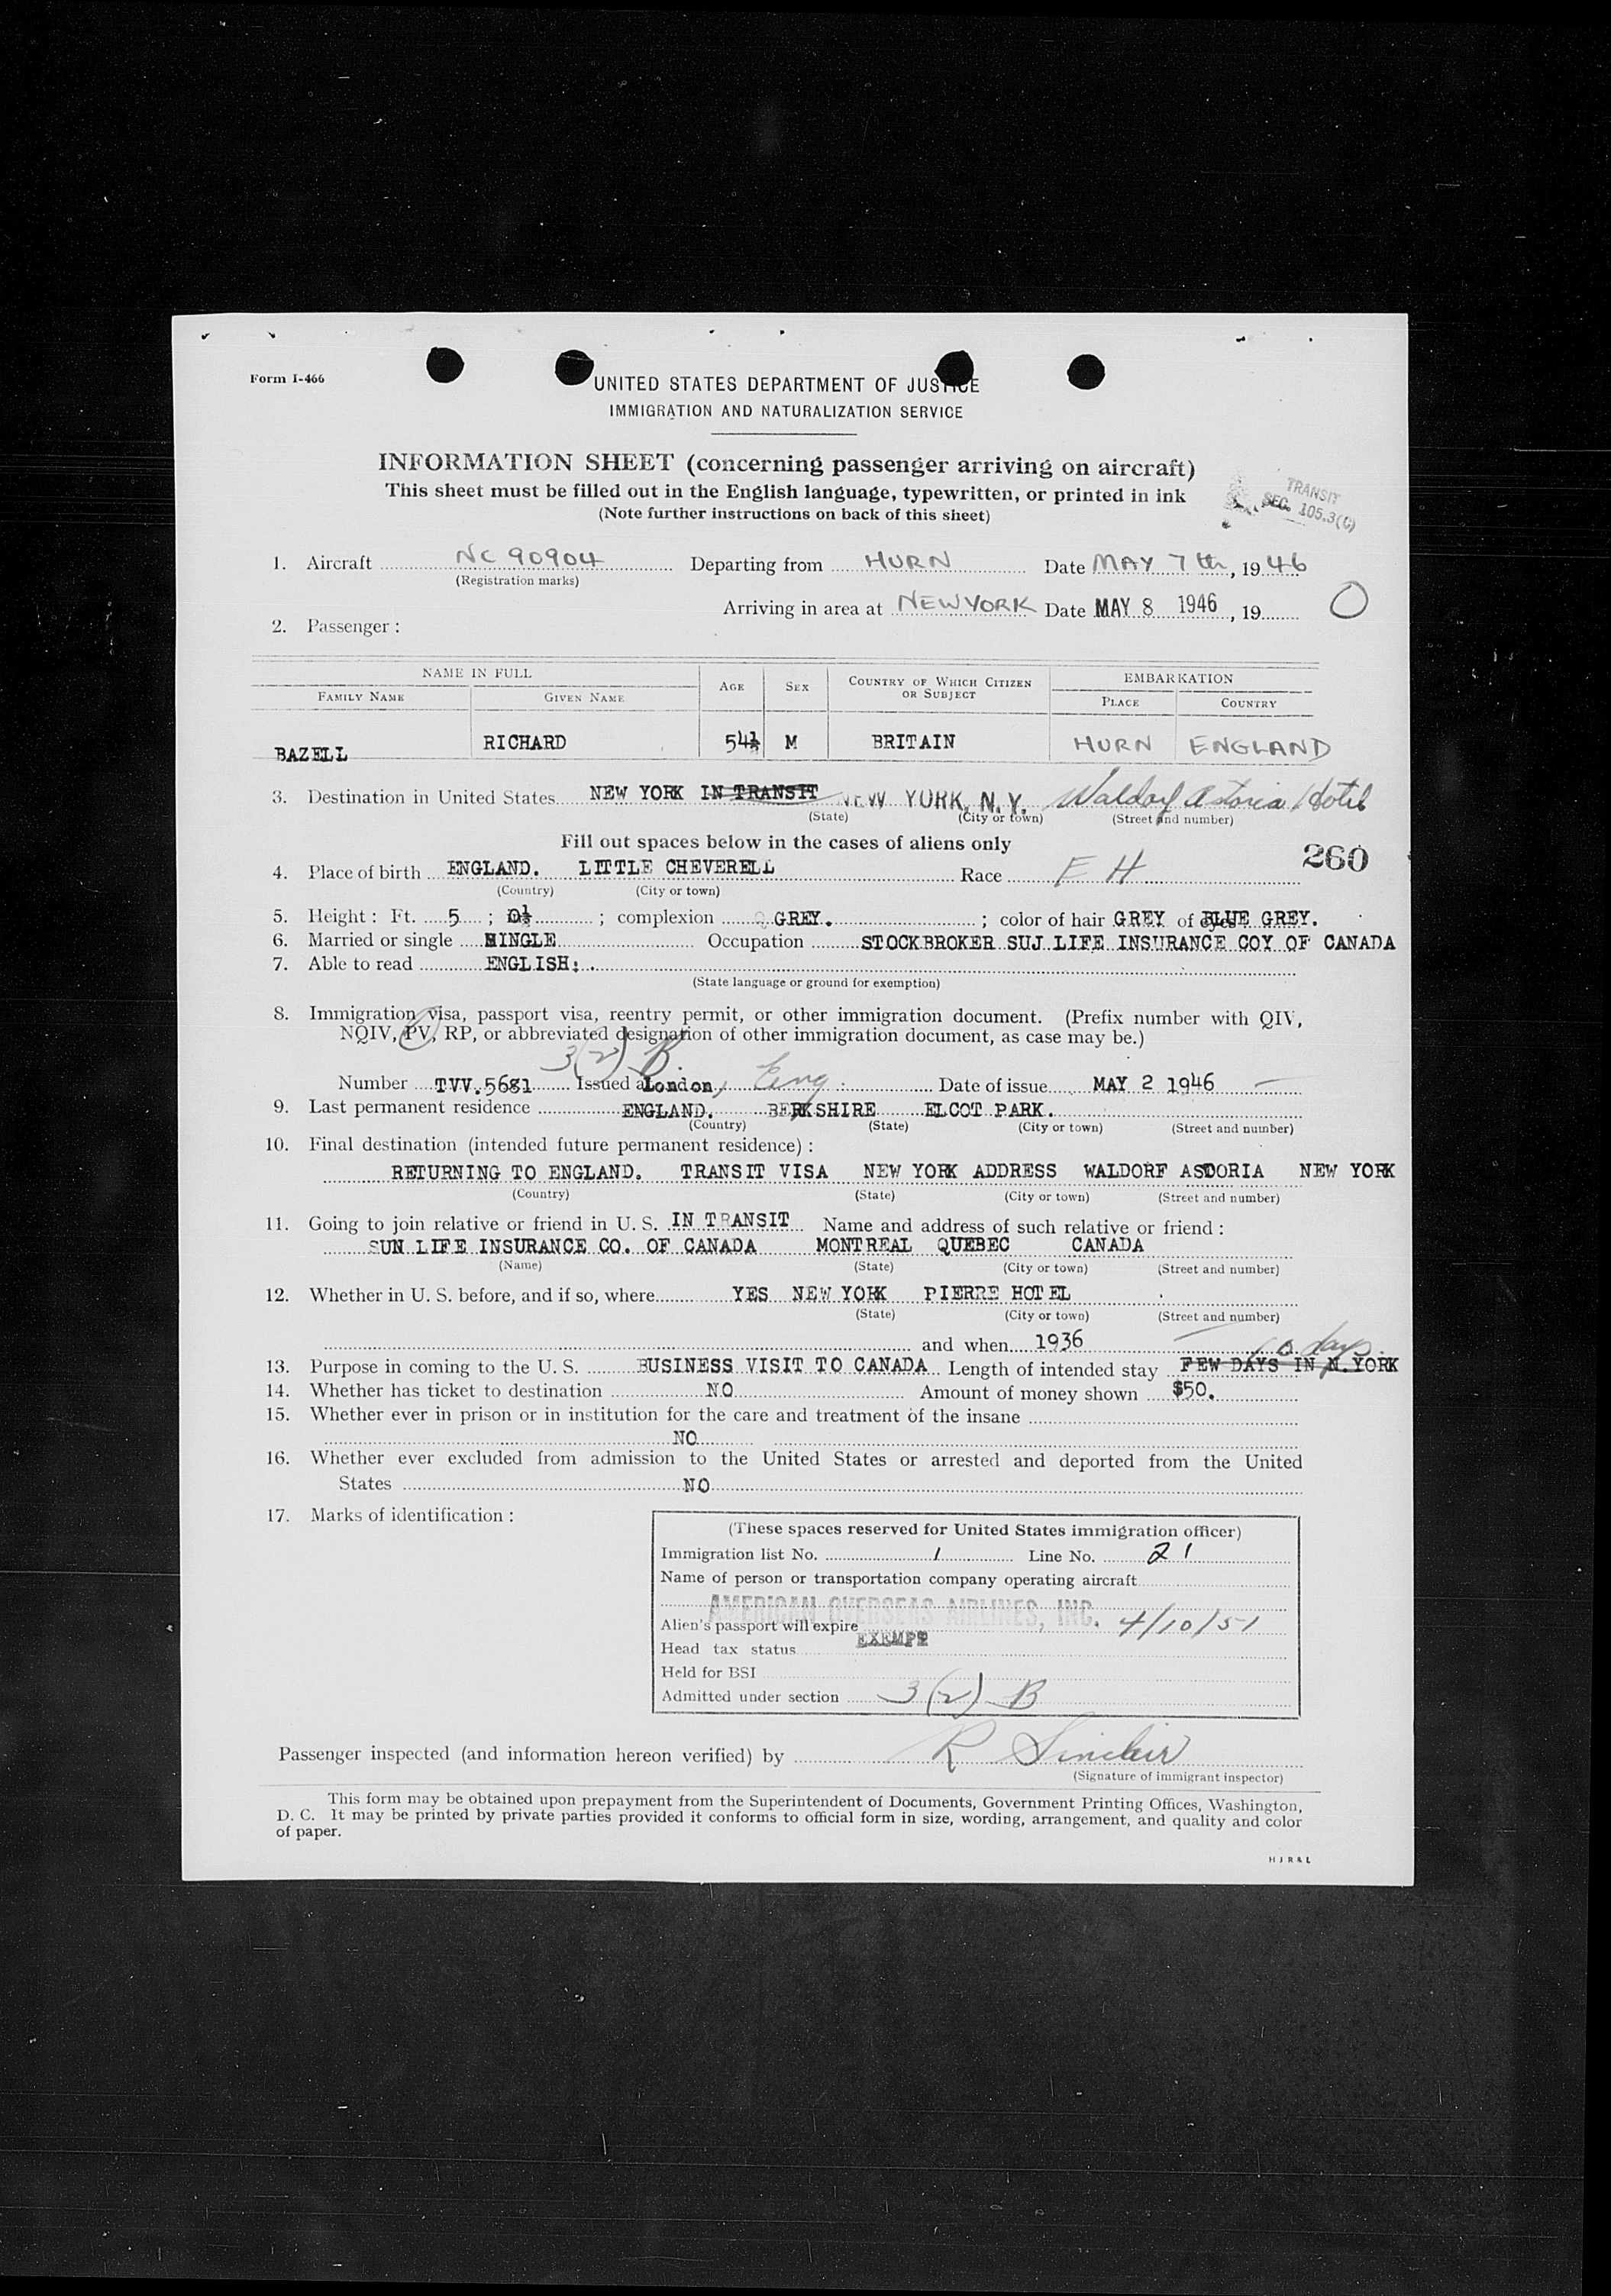 Form I-466
UNITED STATES DEPARTMENT OF JUSTICE
IMMIGRATION AND NATURALIZATION SERVICE
INFORMATION SHEET (concerning passenger arriving on aircraft)
This sheet must be filled out in the English language, typewritten, or printed in ink
(Note further instructions on back of this sheet)
TRANSIT
SEC. 105.3(C)
1. Aircraft NC 90904 Departing from HURN Date MAY 7th, 1946
(Registration marks)
Arriving in area at NEW YORK Date MAY 8 1946, 19
O
2. Passenger:
NAME IN FULL AGE SEX COUNTRY OF WHICH CITIZEN OR SUBJECT EMBARKATION
FAMILY NAME GIVEN NAME PLACE COUNTRY
BAZELL RICHARD 54½ M BRITAIN HURN ENGLAND
3. Destination in United States NEW YORK IN TRANSIT NEW YORK, N.Y. Waldorf Astoria Hotel
(State) (City or town) (Street and number)
Fill out spaces below in the cases of aliens only
260
4. Place of birth ENGLAND. LITTLE CHEVERELL Race E H
(Country) (City or town)
5. Height: Ft. 5 ; 0½ ; complexion GREY. ; color of hair GREY of eyes BLUE GREY.
6. Married or single SINGLE Occupation STOCKBROKER SUJ LIFE INSURANCE COY OF CANADA
7. Able to read ENGLISH:.
(State language or ground for exemption)
8. Immigration visa, passport visa, reentry permit, or other immigration document. (Prefix number with QIV,
NQIV, PV, RP, or abbreviated designation of other immigration document, as case may be.)
3(2) B.
Number TVV.5681 Issued at London, Eng Date of issue MAY 2 1946
9. Last permanent residence ENGLAND. BERKSHIRE ELCOT PARK.
(Country) (State) (City or town) (Street and number)
10. Final destination (intended future permanent residence):
RETURNING TO ENGLAND. TRANSIT VISA NEW YORK ADDRESS WALDORF ASTORIA NEW YORK
(Country) (State) (City or town) (Street and number)
11. Going to join relative or friend in U. S. IN TRANSIT Name and address of such relative or friend:
SUN LIFE INSURANCE CO. OF CANADA MONTREAL QUEBEC CANADA
(Name) (State) (City or town) (Street and number)
12. Whether in U. S. before, and if so, where YES NEW YORK PIERRE HOTEL
(State) (City or town) (Street and number)
and when 1936
10 days.
13. Purpose in coming to the U. S. BUSINESS VISIT TO CANADA Length of intended stay FEW DAYS IN N.YORK
14. Whether has ticket to destination NO Amount of money shown $50.
15. Whether ever in prison or in institution for the care and treatment of the insane
NO
16. Whether ever excluded from admission to the United States or arrested and deported from the United
States NO
17. Marks of identification:
(These spaces reserved for United States immigration officer)
Immigration list No. 1 Line No. 21
Name of person or transportation company operating aircraft
AMERICAN OVERSEAS AIRLINES, INC.
Alien's passport will expire 4/10/51
Head tax status EXEMPT
Held for BSI
Admitted under section 3(2) B
Passenger inspected (and information hereon verified) by R Sinclair
(Signature of immigrant inspector)
This form may be obtained upon prepayment from the Superintendent of Documents, Government Printing Offices, Washington,
D. C. It may be printed by private parties provided it conforms to official form in size, wording, arrangement, and quality and color
of paper.
H J R & L